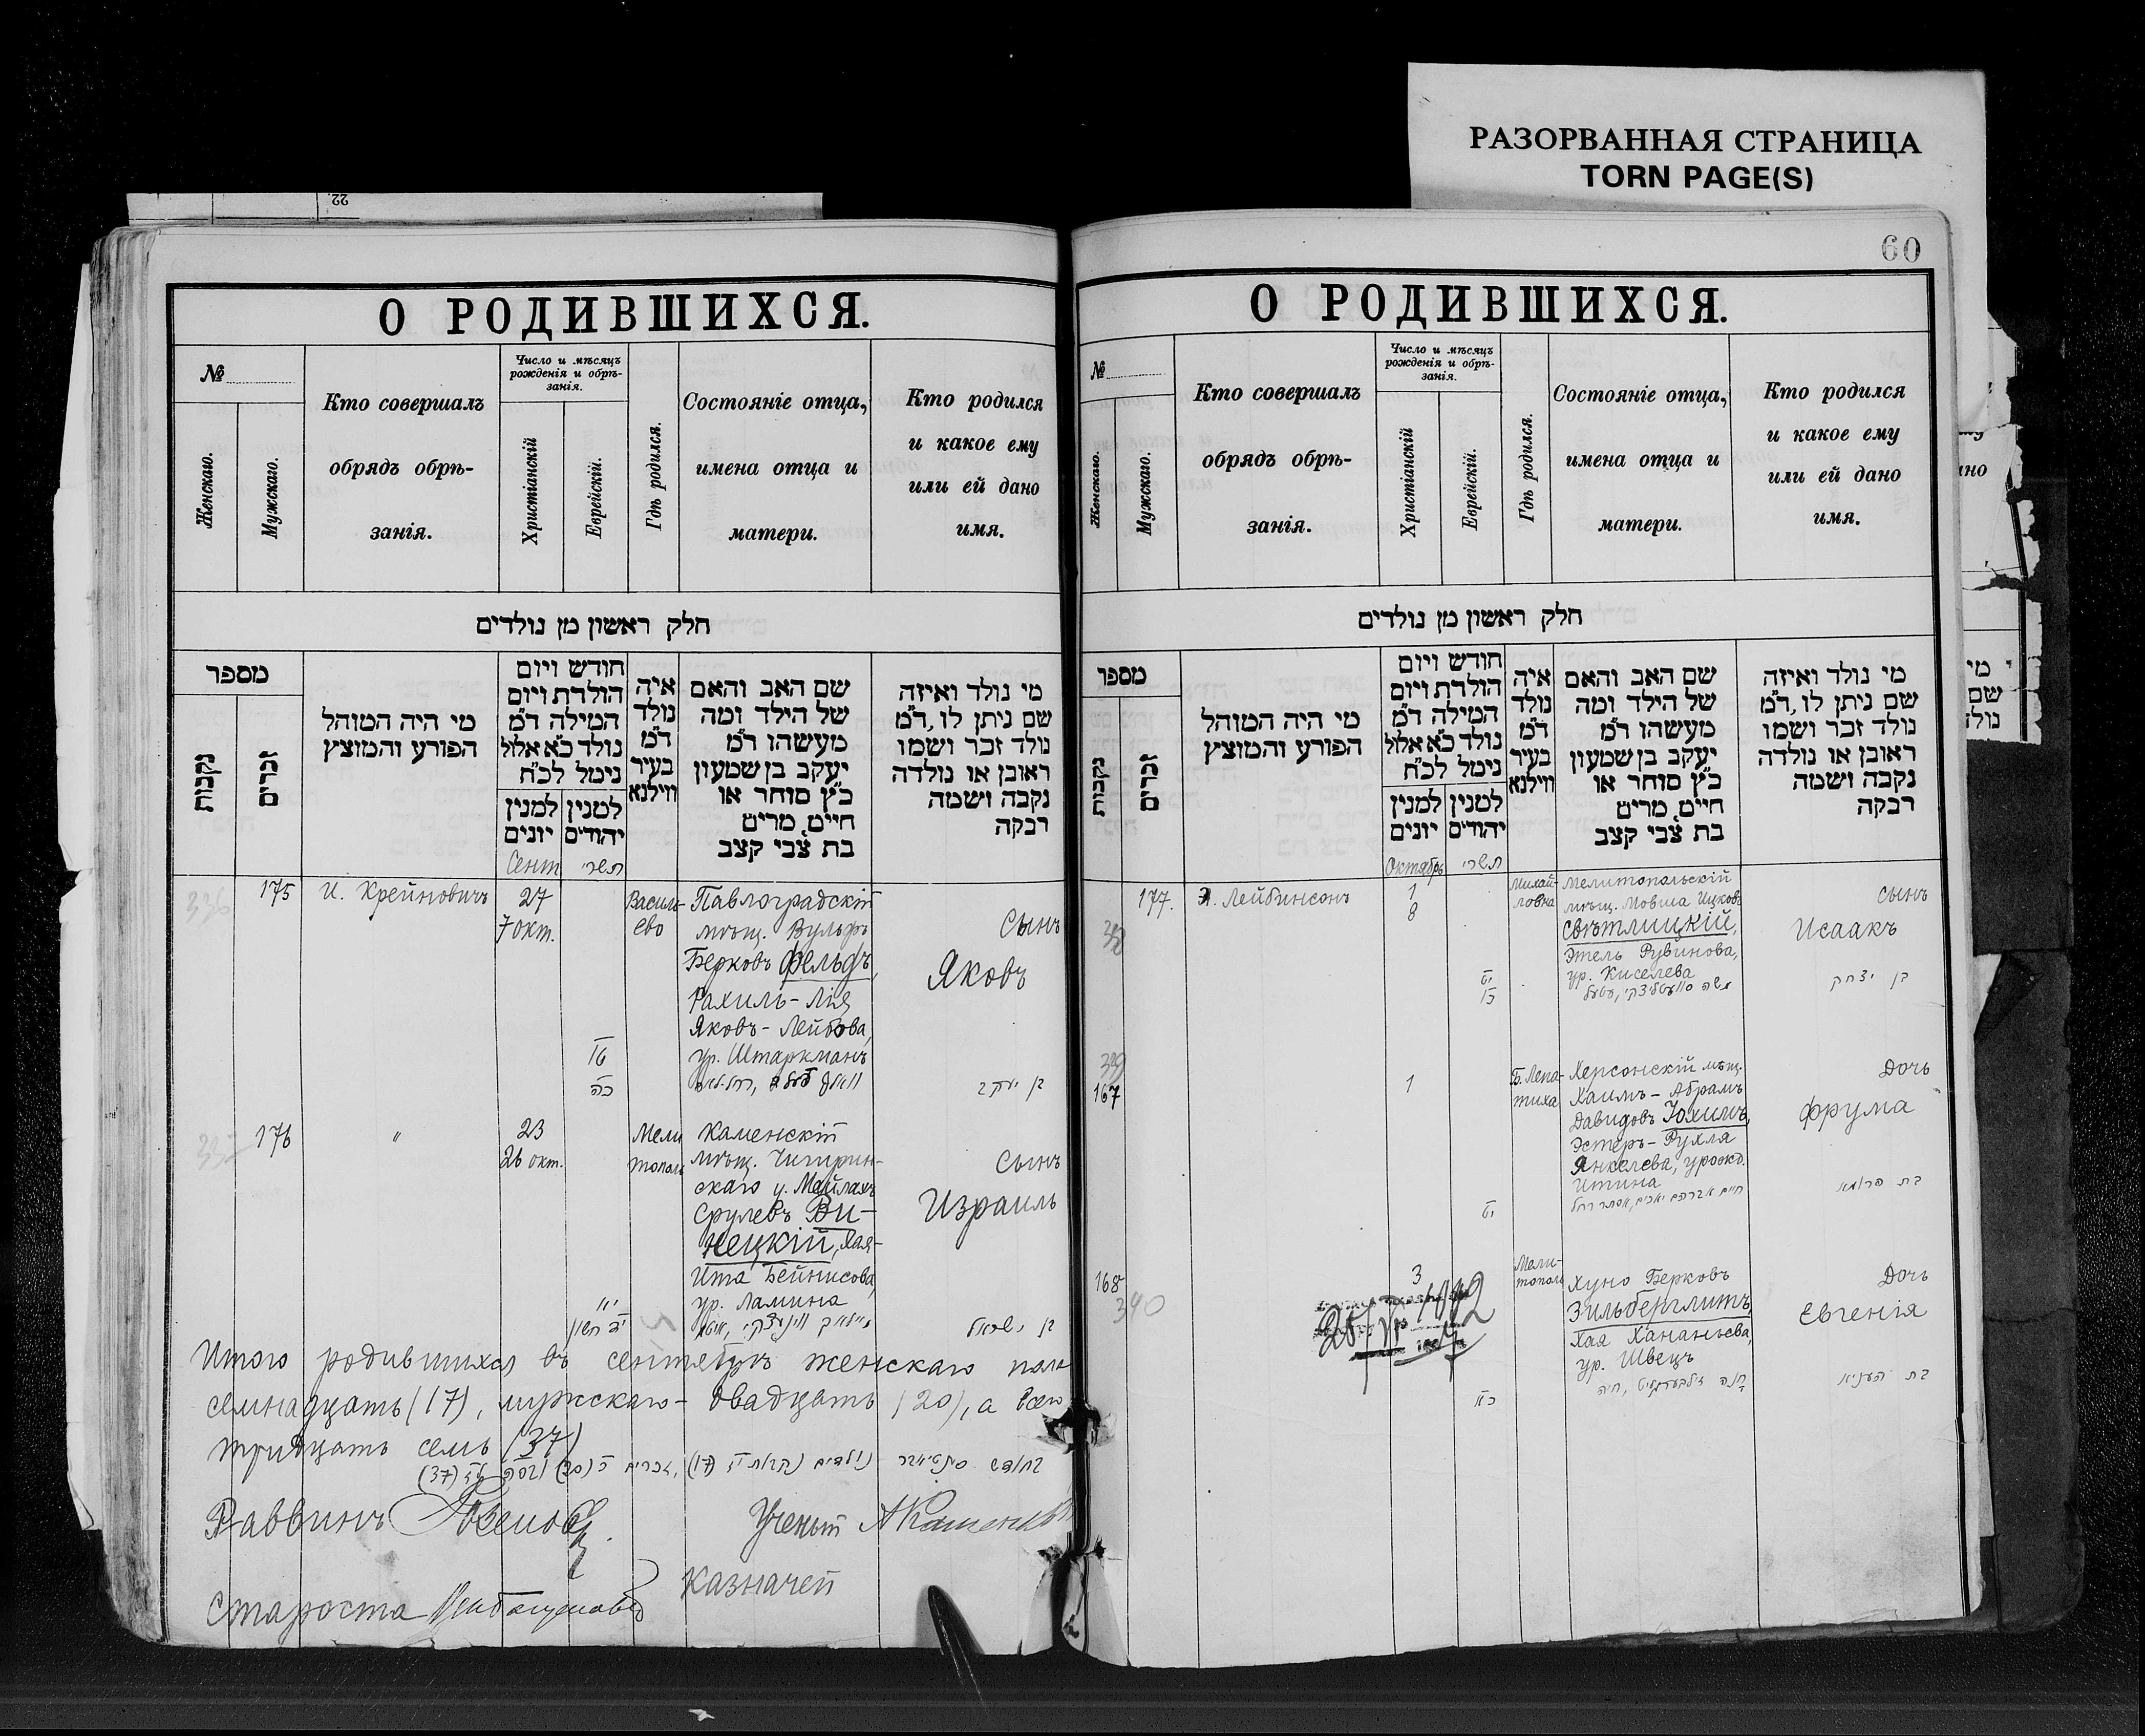 РАЗОРВАННАЯ СТРАНИЦА
TORN PAGE(S)
22
О РОДИВШИХСЯ.
№
Женскаго.
Мужскаго.
Кто совершалъ
обрядъ обрѣ-
занія.
Число и мѣсяцъ
рожденія и обрѣ-
занія.
Христіанскій
Еврейскій.
Гдѣ родился.
Состояніе отца,
имена отца и
матери.
Кто родился
и какое ему
или ей дано
имя.
חלק ראשון מן נולדים
מספר
נקבות
זכרים
מי היה המוהל
הפורע והמוצץ
חודש ויום
הולדת ויום
המילה ד״מ
נולד כ״א אלול
נימל לכ״ח
למנין
יונים
למנין
יהודים
איה
נולד
ד״מ
בעיר
ווילנא
שם האב והאם
של הילד ומה
מעשהו ד״מ
יעקב בן שמעון
כ״ץ סוחר או
חייט, מרים
בת צבי קצב
מי נולד ואיזה
שם ניתן לו, ד״מ
נולד זכר ושמו
ראובן או נולדה
נקבה ושמה
רבקה
Сент
תשרי
336
175
И. Крейновичъ
27
7 окт.
Василь-
ево
Павлоградскій
мѣщ. Вульфъ
Берковъ Фельдъ,
Рахиль-Лія
Яковъ-Лейбова,
ур. Штаркманъ
Сынъ
Яковъ
בן יעקב
176
"
23
26 окт.
Мели
тополь
Каменскій
мѣщ. Чигирин-
скаго у. Мейлахъ
Срулевъ Ви-
нецкій, Хая-
Ита Бейнисова,
ур. Ламина
Сынъ
Израиль
בן ישראל
Итого родившихся въ сентябрѣ женскаго пола
семнадцать (17), мужскаго - двадцать (20), а всего
тридцать семь (37)
Раввинъ
Ученый
Казначей
Староста
60
О РОДИВШИХСЯ.
№
Женскаго.
Мужскаго.
Кто совершалъ
обрядъ обрѣ-
занія.
Число и мѣсяцъ
рожденія и обрѣ-
занія.
Христіанскій
Еврейскій.
Гдѣ родился.
Состояніе отца,
имена отца и
матери.
Кто родился
и какое ему
или ей дано
имя.
חלק ראשון מן נולדים
מספר
נקבות
זכרים
מי היה המוהל
הפורע והמוצץ
חודש ויום
הולדת ויום
המילה ד״מ
נולד כ״א אלול
נימל לכ״ח
למנין
יונים
למנין
יהודים
איה
נולד
ד״מ
בעיר
ווילנא
שם האב והאם
של הילד ומה
מעשהו ד״מ
יעקב בן שמעון
כ״ץ סוחר או
חייט, מרים
בת צבי קצב
מי נולד ואיזה
שם ניתן לו, ד״מ
נולד זכר ושמו
ראובן או נולדה
נקבה ושמה
רבקה
Октябрь
תשרי
177.
Лейбинсонъ
1
8
Михай-
ловка
Мелитопольскій
мѣщ. Мовша Ицковъ
Свѣтлицкій,
Этель Рувинова,
ур. Киселева
сынъ
Исаакъ
בן יצחק
339
167
1
Б. Лепа-
тиха
Херсонскій мѣщ.
Хаимъ-Абрамъ
Давидовъ Іохимъ,
Эстеръ-Рухля
Янкелева, урожд.
Итина
Дочь
Фрума
בת פרומא
168
340
3
Мели-
тополь
Хуно Берковъ
Зильберглитъ,
Хая Хананьева,
ур. Швецъ
Дочь
Евгенія